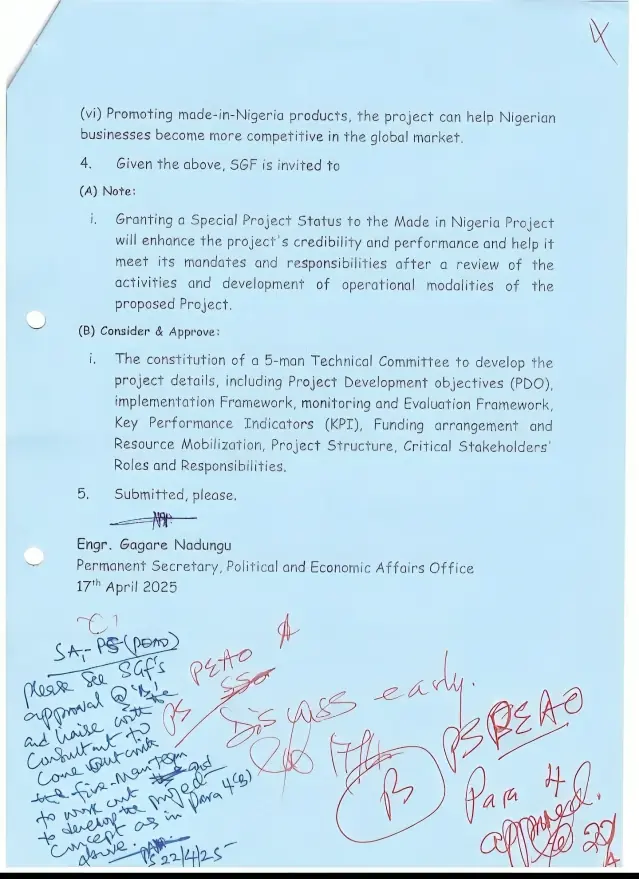 4
(vi) Promoting made-in-Nigeria products, the project can help Nigerian
businesses become more competitive in the global market.
4. Given the above, SGF is invited to
(A) Note:
i. Granting a Special Project Status to the Made in Nigeria Project
will enhance the project's credibility and performance and help it
meet its mandates and responsibilities after a review of the
activities and development of operational modalities of the
proposed Project.
(B) Consider & Approve:
i. The constitution of a 5-man Technical Committee to develop the
project details, including Project Development objectives (PDO),
implementation Framework, monitoring and Evaluation Framework,
Key Performance Indicators (KPI), Funding arrangement and
Resource Mobilization, Project Structure, Critical Stakeholders'
Roles and Responsibilities.
5. Submitted, please.
Engr. Gagare Nadungu
Permanent Secretary, Political and Economic Affairs Office
17th April 2025
'C'
SA,-PS-(PEAO)
please see SGF's
approval @ 'B'
and liaise with
Consultant to
come out with
the five-man team
to work out and
to develop the project
concept as in para 4(B)
above.
PS 22/4/25
A
PS PEAO
SSO
Discuss early.
17/4
B
PS PEAO
Para 4
approved.
22/4